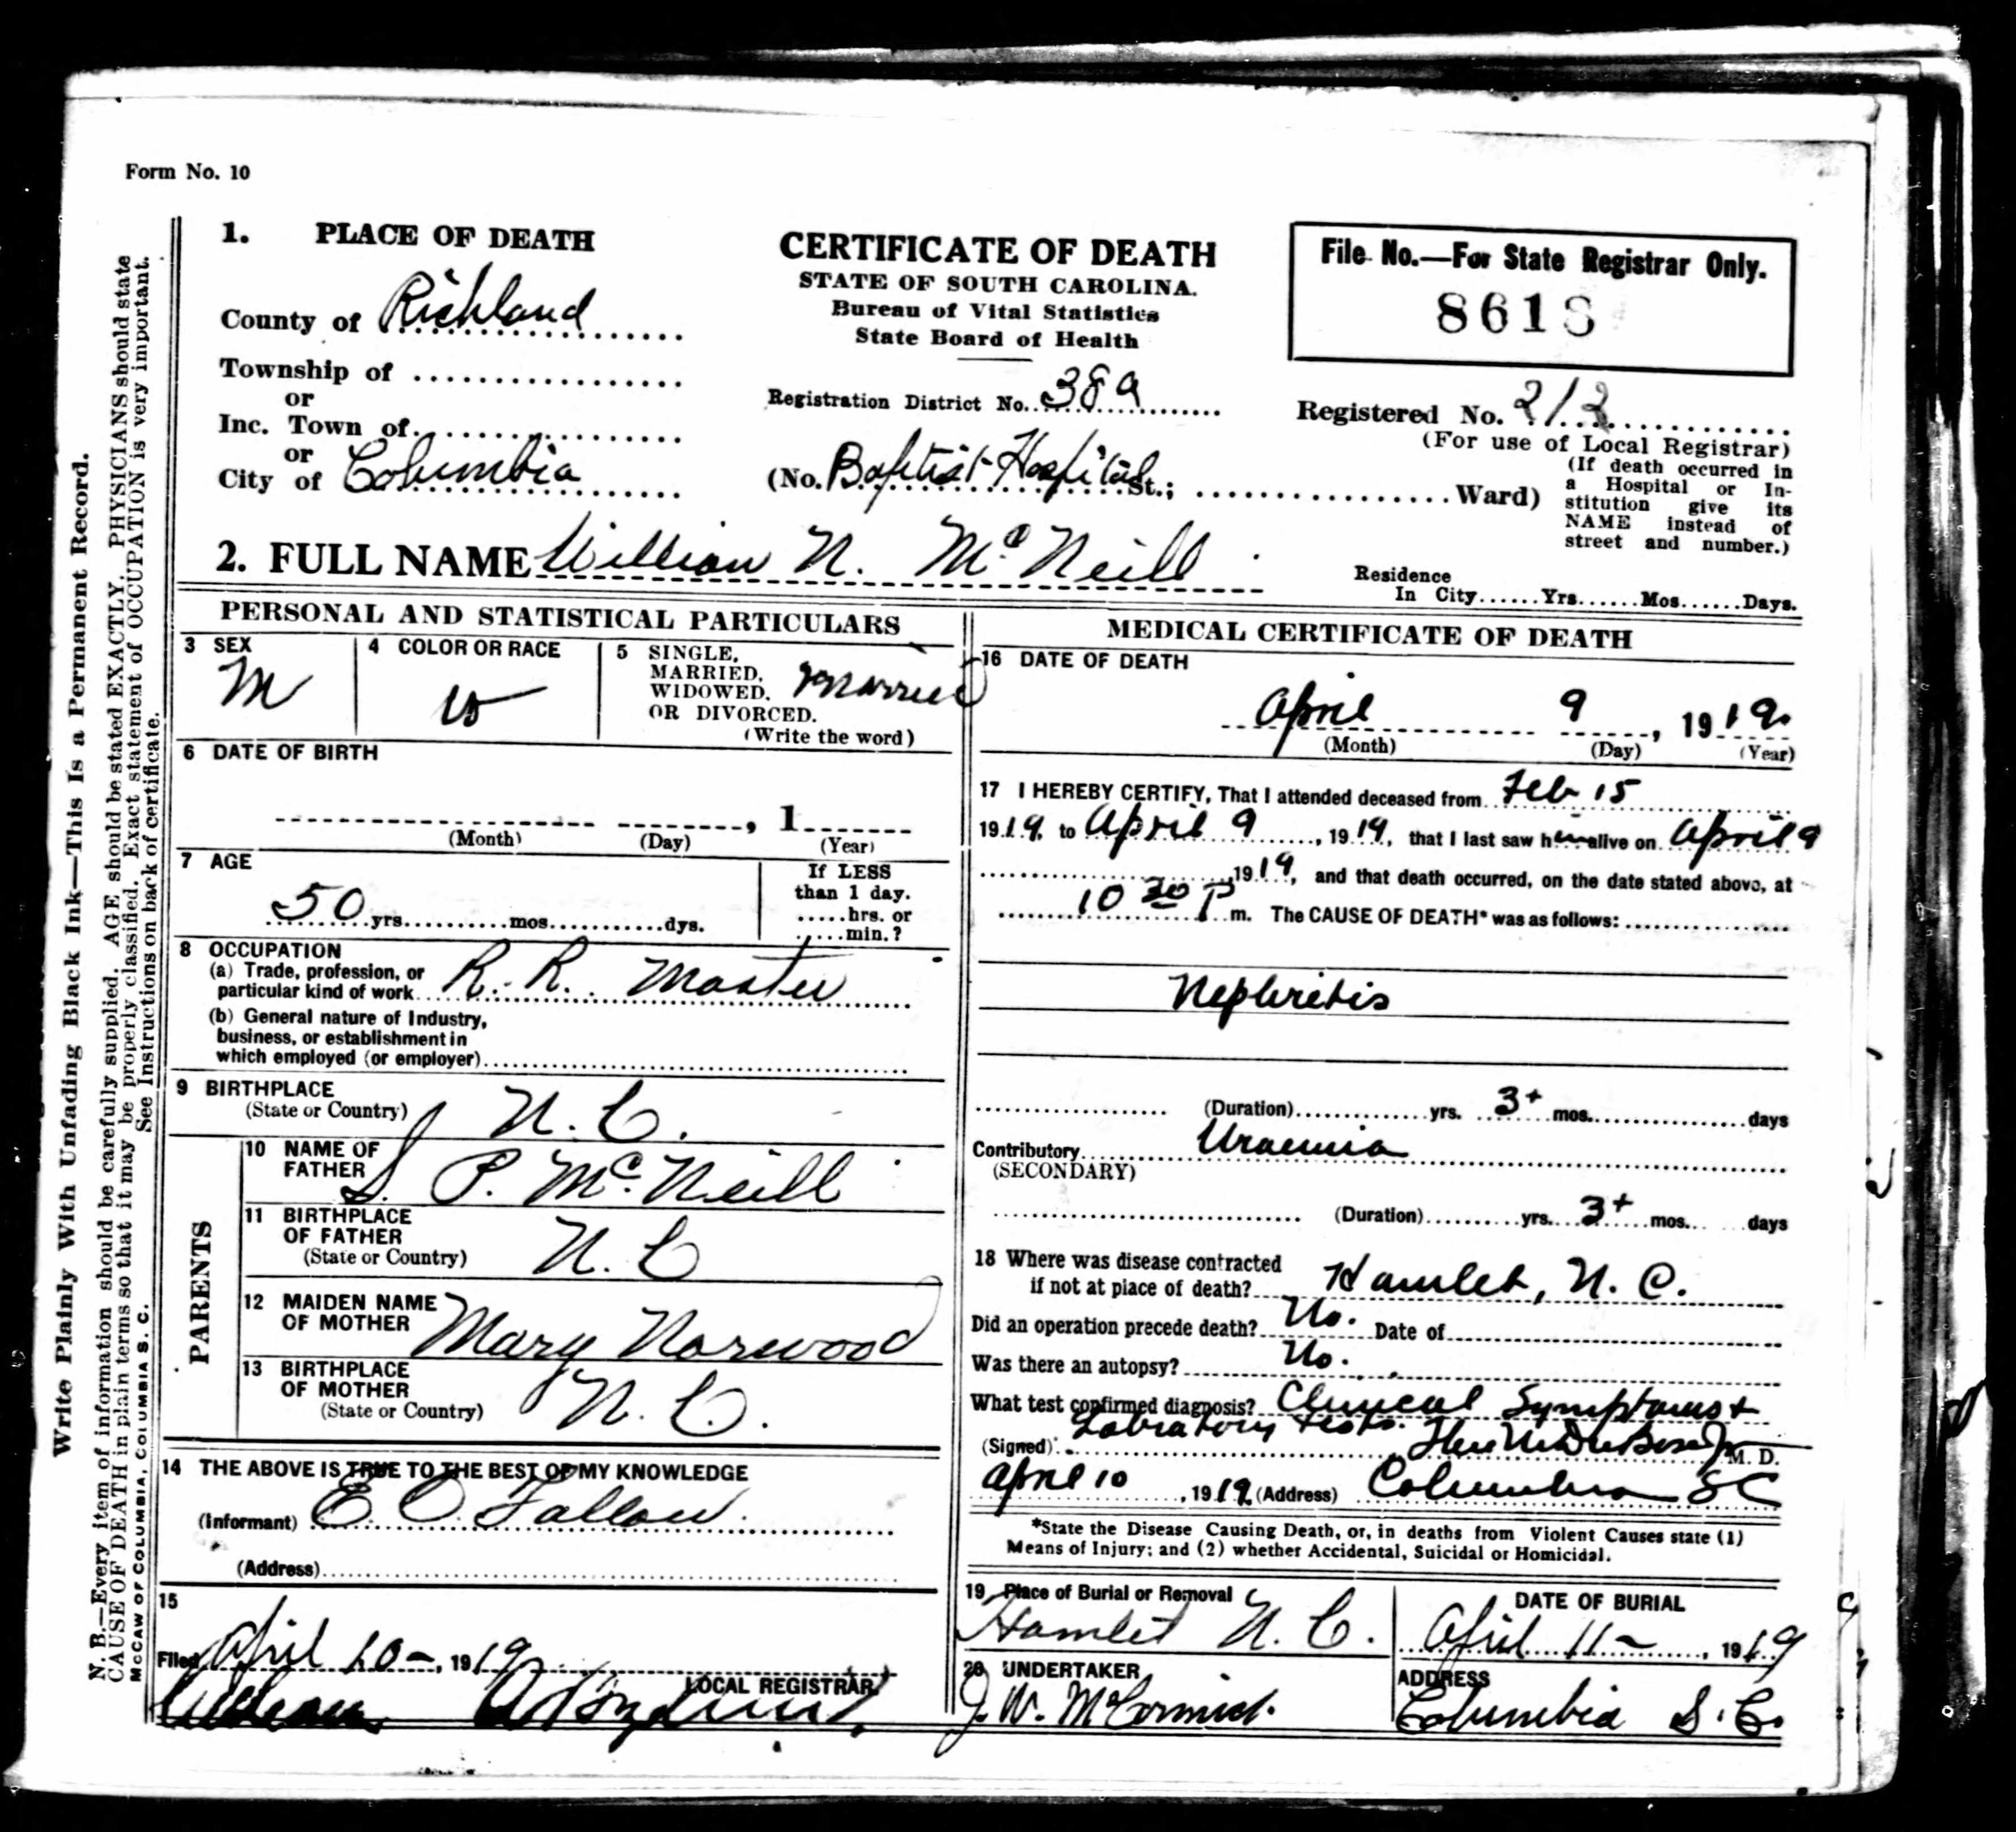 Form No. 10
1. PLACE OF DEATH
County of Richland
Township of
or
Inc. Town of
or
City of Columbia
CERTIFICATE OF DEATH
STATE OF SOUTH CAROLINA.
Bureau of Vital Statistics
State Board of Health
Registration District No. 38a
(No. Baptist Hospital St.; Ward)
File No.—For State Registrar Only.
8618
Registered No. 212
(For use of Local Registrar)
(If death occurred in
a Hospital or In-
stitution give its
NAME instead of
street and number.)
2. FULL NAME William N. McNeill
Residence
In City......Yrs......Mos......Days.
PERSONAL AND STATISTICAL PARTICULARS
3 SEX
M
4 COLOR OR RACE
W
5 SINGLE,
MARRIED,
WIDOWED,
OR DIVORCED.
(Write the word)
Married
6 DATE OF BIRTH
, 1
(Month) (Day) (Year)
7 AGE
50 yrs. mos. dys.
If LESS
than 1 day.
.....hrs. or
.....min.?
8 OCCUPATION
(a) Trade, profession, or
particular kind of work R. R. Master
(b) General nature of Industry,
business, or establishment in
which employed (or employer)
9 BIRTHPLACE
(State or Country) N. C.
PARENTS
10 NAME OF
FATHER S. P. McNeill
11 BIRTHPLACE
OF FATHER
(State or Country) N. C
12 MAIDEN NAME
OF MOTHER Mary Norwood
13 BIRTHPLACE
OF MOTHER
(State or Country) N. C.
14 THE ABOVE IS TRUE TO THE BEST OF MY KNOWLEDGE
(Informant) E. O. Fallow
(Address)
15
Filed April 10-, 1919
LOCAL REGISTRAR
MEDICAL CERTIFICATE OF DEATH
16 DATE OF DEATH
April 9, 1919.
(Month) (Day) (Year)
17 I HEREBY CERTIFY, That I attended deceased from Feb 15
1919, to April 9, 1919, that I last saw him alive on April 9
1919, and that death occurred, on the date stated above, at
10 30 P m. The CAUSE OF DEATH* was as follows:
Nephritis
(Duration) yrs. 3+ mos. days
Contributory Uraemia
(SECONDARY)
(Duration) yrs. 3+ mos. days
18 Where was disease contracted
if not at place of death? Hamlet, N. C.
Did an operation precede death? No. Date of
Was there an autopsy? No.
What test confirmed diagnosis? Clinical Symptoms +
Labratory tests.
(Signed) M. D.
April 10, 1919 (Address) Columbia SC
*State the Disease Causing Death, or, in deaths from Violent Causes state (1)
Means of Injury; and (2) whether Accidental, Suicidal or Homicidal.
19 Place of Burial or Removal
Hamlet N. C.
DATE OF BURIAL
April 11-, 1919
20 UNDERTAKER
J. W. McCormick.
ADDRESS
Columbia S. C.
Write Plainly With Unfading Black Ink—This Is a Permanent Record.
N. B.—Every item of information should be carefully supplied. AGE should be stated EXACTLY. PHYSICIANS should state
CAUSE OF DEATH in plain terms so that it may be properly classified. Exact statement of OCCUPATION is very important.
See Instructions on back of certificate.
McCAW OF COLUMBIA, COLUMBIA S. C.